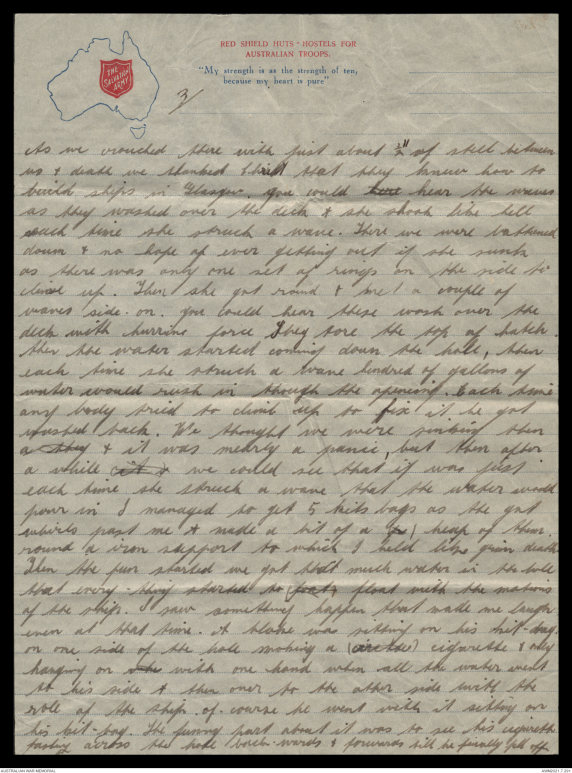 RED SHIELD HUTS * HOSTELS FOR
AUSTRALIAN TROOPS.
"My strength is as the strength of ten,
because my heart is pure"
THE
SALVATION
ARMY
3/
As we crouched there with just about ½" of still between
us & death we thanked Christ that they knew how to
build ships in Glasgow. you could hear the waves
as they washed over the deck & she shook like hell
each time she struck a wave. There we were battened
down & no hope of ever getting out if she sunk
as there was only one set of rings on the side to
climb up. Then she got round & met a couple of
waves side on. you could hear these wash over the
deck with hurrine force They tore the top of hatch.
then the water started coming down the hole, then
each time she struck a wave hundred of gallons of
water would rush in though the opening. Each time
any body tried to climb up to fix it he got
washed back. We thought we were sinking then
a & it was nearly a panic, but then after
a while we could see that it was just
each time she struck a wave that the water would
pour in I managed to get 5 kits bags as the got
whirls past me & made a bit of a heap of them
round a iron support to which I held like grim death
Then the fun started we got that much water in the hole
that every thing started to float with the motions
of the ship. I saw something happen that made me laugh
even at that time. A bloke was sitting on his kit-bag
on one side of the hole smoking a cigarette & only
hanging on with one hand when all the water went
to his side & then over to the other side with the
role of the ship. of course he went with it sitting on
his kit-bag. The funny part about it was to see his cigarette
across the hole back-wards & forwards till he finally fell off
AUSTRALIAN WAR MEMORIAL